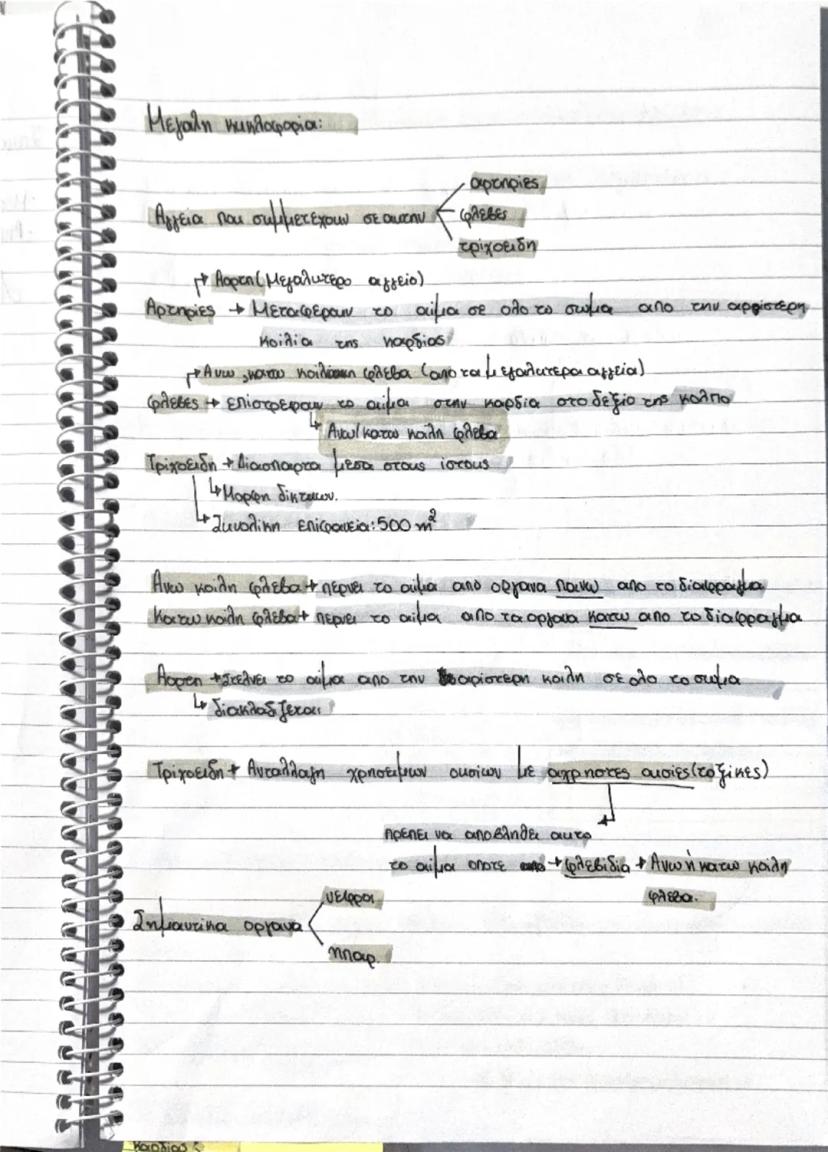 Μεγαλη κυκλοφορια:
αρτηριες
Αγγεια που συμμετεχουν σε αυτην φλεβες
τριχοειδη
↱ Αορτη (Μεγαλυτερο αγγειο)
Αρτηριες → Μεταφερουν το αιμα σε ολο το σωμα απο την αριστερη
κοιλια της καρδιας
↱ Ανω, κατω κοιλη φλεβα (απο τα μεγαλυτερα αγγεια)
φλεβες → επιστρεφουν το αιμα στην καρδια στο δεξιο της κολπο
↳ Ανω/κατω κοιλη φλεβα
Τριχοειδη → Διασπαρτα μεσα στους ιστους
↳ Μορφη δικτυων.
↳ Συνολικη επιφανεια: 500 m²
Ανω κοιλη φλεβα → περνει το αιμα απο οργανα πανω απο το διαφραγμα
Κατω κοιλη φλεβα → περνει το αιμα απο τα οργανα κατω απο το διαφραγμα
Αορτη → Στελνει το αιμα απο την αριστερη κοιλη σε ολο το σωμα
↳ διακλαδζεται
Τριχοειδη → Ανταλλαγη χρησειμων ουσιων με αχρηστες ουσιες (τοξικες)
πρεπει να αποβληθει αυτο
το αιμα οποτε → φλεβιδια → Ανω ή κατω κοιλη
φλεβα.
νεφροι
Σημαντικα οργανα
ηπαρ.
καρδιας